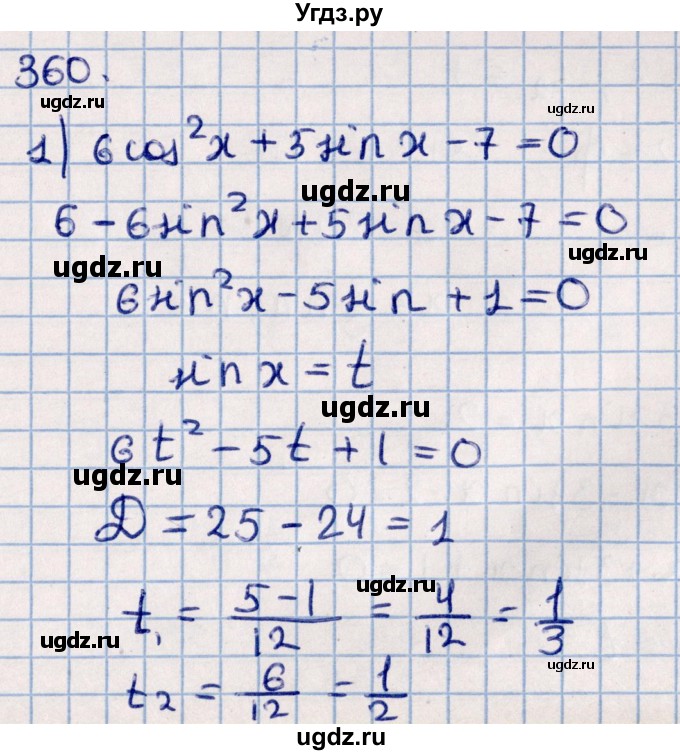 Угдз.ру
360.
ugdz.ru
ugdz.ru
1) 6cos²x + 5sin x - 7 = 0
ugdz.ru
6 - 6sin²x + 5sin x - 7 = 0
ugdz.ru
ugdz.ru
6sin²x - 5sin + 1 = 0
sin x = t
ugdz.ru
6t² - 5t + 1 = 0
ugdz.ru
Д = 25 - 24 = 1
ugdz.ru
t₁ = (5-1)/12 = 4/12 = 1/3
ugdz.ru
ugdz.ru
t₂ = 6/12 = 1/2
ugdz.ru